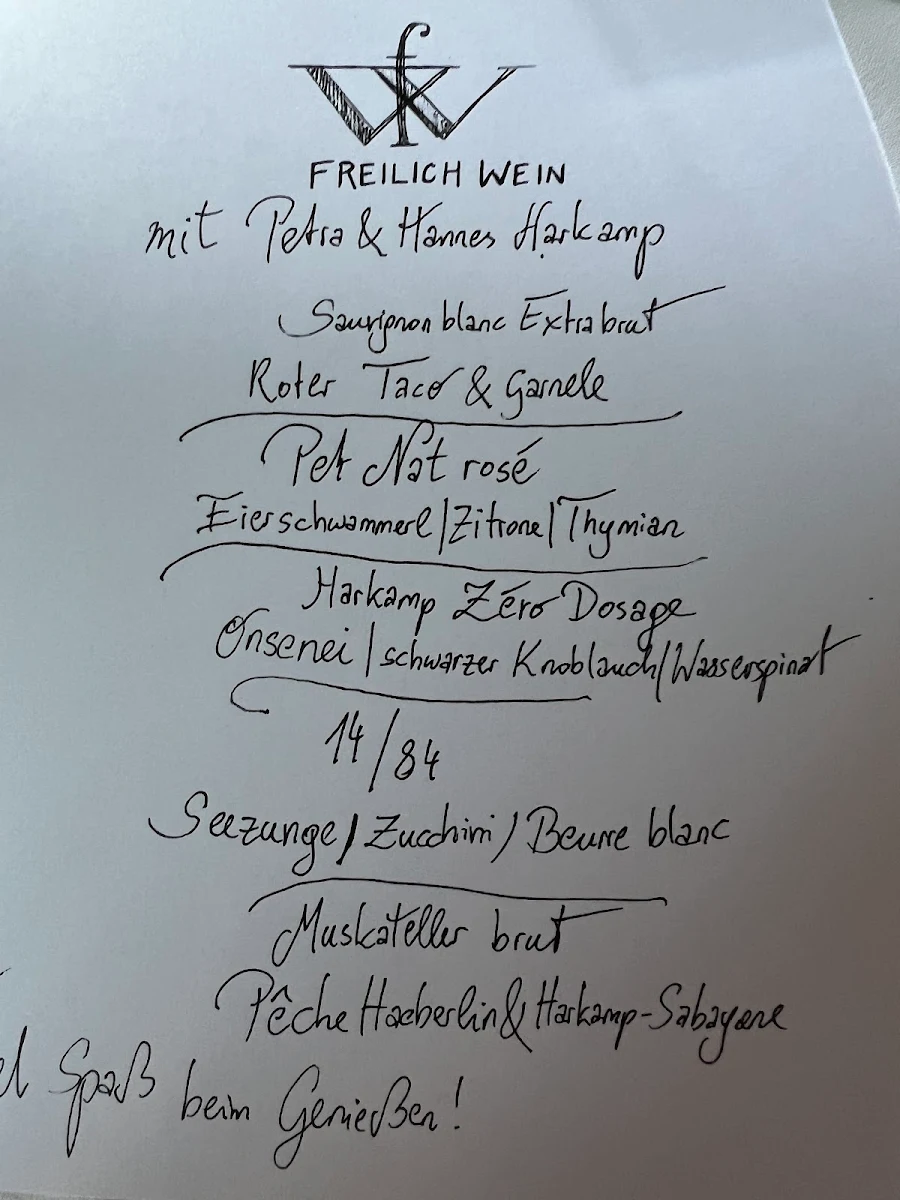 FREILICH WEIN
mit Petra & Hannes Harkamp
Sauvignon blanc Extrabrut
Roter Taco & Garnele
Pet Nat rosé
Eierschwammerl/Zitrone/Thymian
Harkamp Zéro Dosage
Onsenei/schwarzer Knoblauch/Wasserspinat
14/84
Seezunge/Zucchini/Beurre blanc
Muskateller brut
Pêche Haeberlin & Harkamp-Sabayone
Spaß beim Genießen!